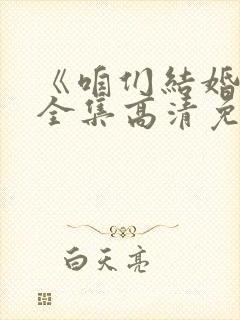 《咱们結婚
全集高清免
白天亮